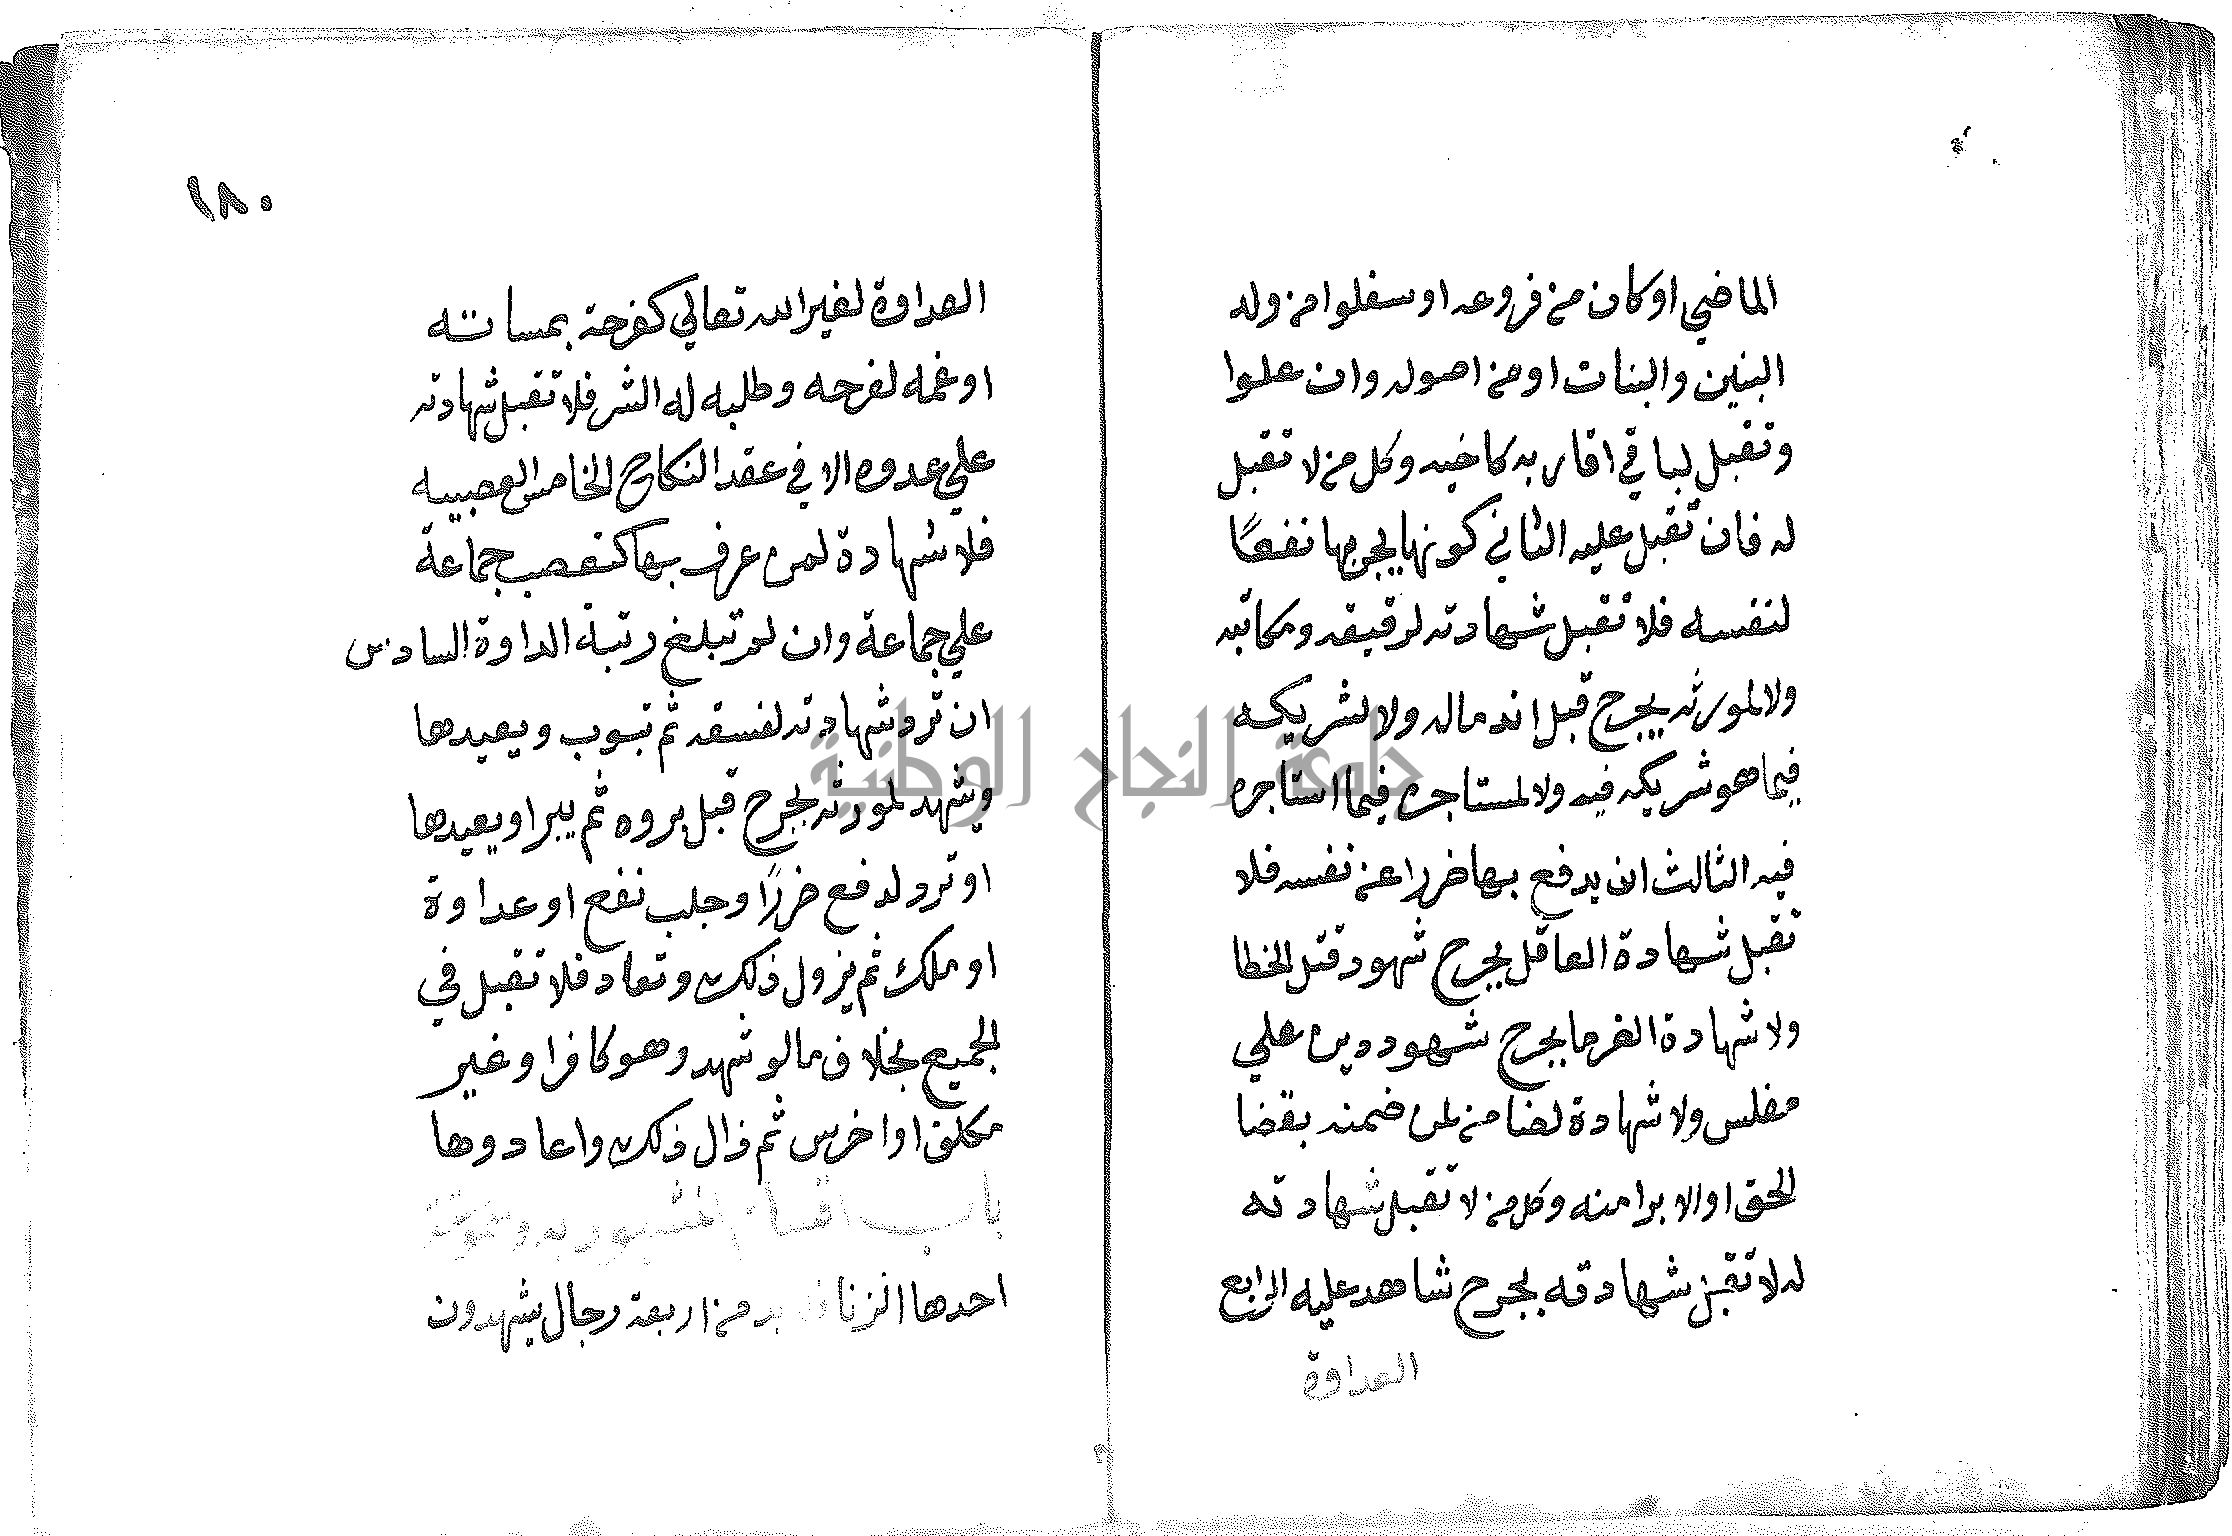 الماضي او كان من فروعه او سفلوا من ولد
البنين والبنات او من اصوله وان علوا
وتقبل لباقي اقاربه كاخيه وكل من لا تقبل
له فان تقبل عليه الثاني كونها يجر بها نفعًا
لنفسه فلا تقبل شهادته لرقيقه ومكاتبه
ولا لمورثه بجرح قبل اندماله ولا لشريكه
فيما هو شريكه فيه ولا لمستاجره فيما استاجره
فيه الثالث ان يدفع بها ضررا عن نفسه فلا
تقبل شهادة العاقل بجرح شهود قتل الخطا
ولا شهادة الغرما بجرح شهود دين علي
مفلس ولا شهادة لضامن لمن ضمنه بقضا
الحق او الابرا منه وكل من لا تقبل شهادته
له لا تقبل شهادته بجرح شاهد عليه الرابع
العداوة
١٨٠
العداوة لغير الله تعالي كفرحة بمساته
او غمه لفرحه وطلبه له الشر فلا تقبل شهادته
علي عدوه الا في عقد النكاح الخامس العصبيه
فلا شهادة لمن عرف بها كتعصب جماعة
علي جماعة وان لم تبلغ رتبة الداوة السادس
ان ترد شهادته لفسقه ثم تبوب ويعيدها
ويشهد لمورثه بجرح قبل بروه ثم يبرا ويعيدها
او ترد لدفع ضررًا وجلب نفع او عداوة
او ملك ثم يزول ذلك وتعاد فلا تقبل في
الجميع بخلاف مالو شهد وهو كافرا وغير
مكلف او اخرس ثم زال ذلك واعادوها
باب اقسام المشهود به
احدها الزنا من اربعة رجال يشهدون
جامعة النجاح الوطنية